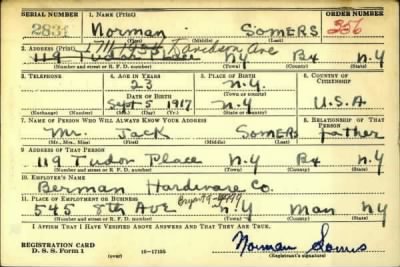 SERIAL NUMBER 1. NAME (Print) ORDER NUMBER
2831 Norman SOMERS 356
(First) (Middle) (Last)
1711 Davidson Ave
2. ADDRESS (Print)
119 Tudor Place N.Y Bx N.Y
(Number and street or R. F. D. number) (Town) (County) (State)
3. TELEPHONE 4. AGE IN YEARS 5. PLACE OF BIRTH 6. COUNTRY OF CITIZENSHIP
23 N.Y.
DATE OF BIRTH (Town or county)
Sept 5 1917 N.Y U.S.A
(Exchange) (Number) (Mo.) (Day) (Yr.) (State or country)
7. NAME OF PERSON WHO WILL ALWAYS KNOW YOUR ADDRESS 8. RELATIONSHIP OF THAT PERSON
Mr. Jack SOMERS father
(Mr., Mrs., Miss) (First) (Middle) (Last)
9. ADDRESS OF THAT PERSON
119 Tudor Place N.Y Bx N.Y
(Number and street or R. F. D. number) (Town) (County) (State)
10. EMPLOYER'S NAME
Berman Hardware Co.
11. PLACE OF EMPLOYMENT OR BUSINESS
545 8th Ave N.Y Man N.Y
(Number and street or R. F. D. number) (Town) (County) (State)
I AFFIRM THAT I HAVE VERIFIED ABOVE ANSWERS AND THAT THEY ARE TRUE.
REGISTRATION CARD
D. S. S. Form 1 (over) 16—17105 Norman Somers
(Registrant's signature)